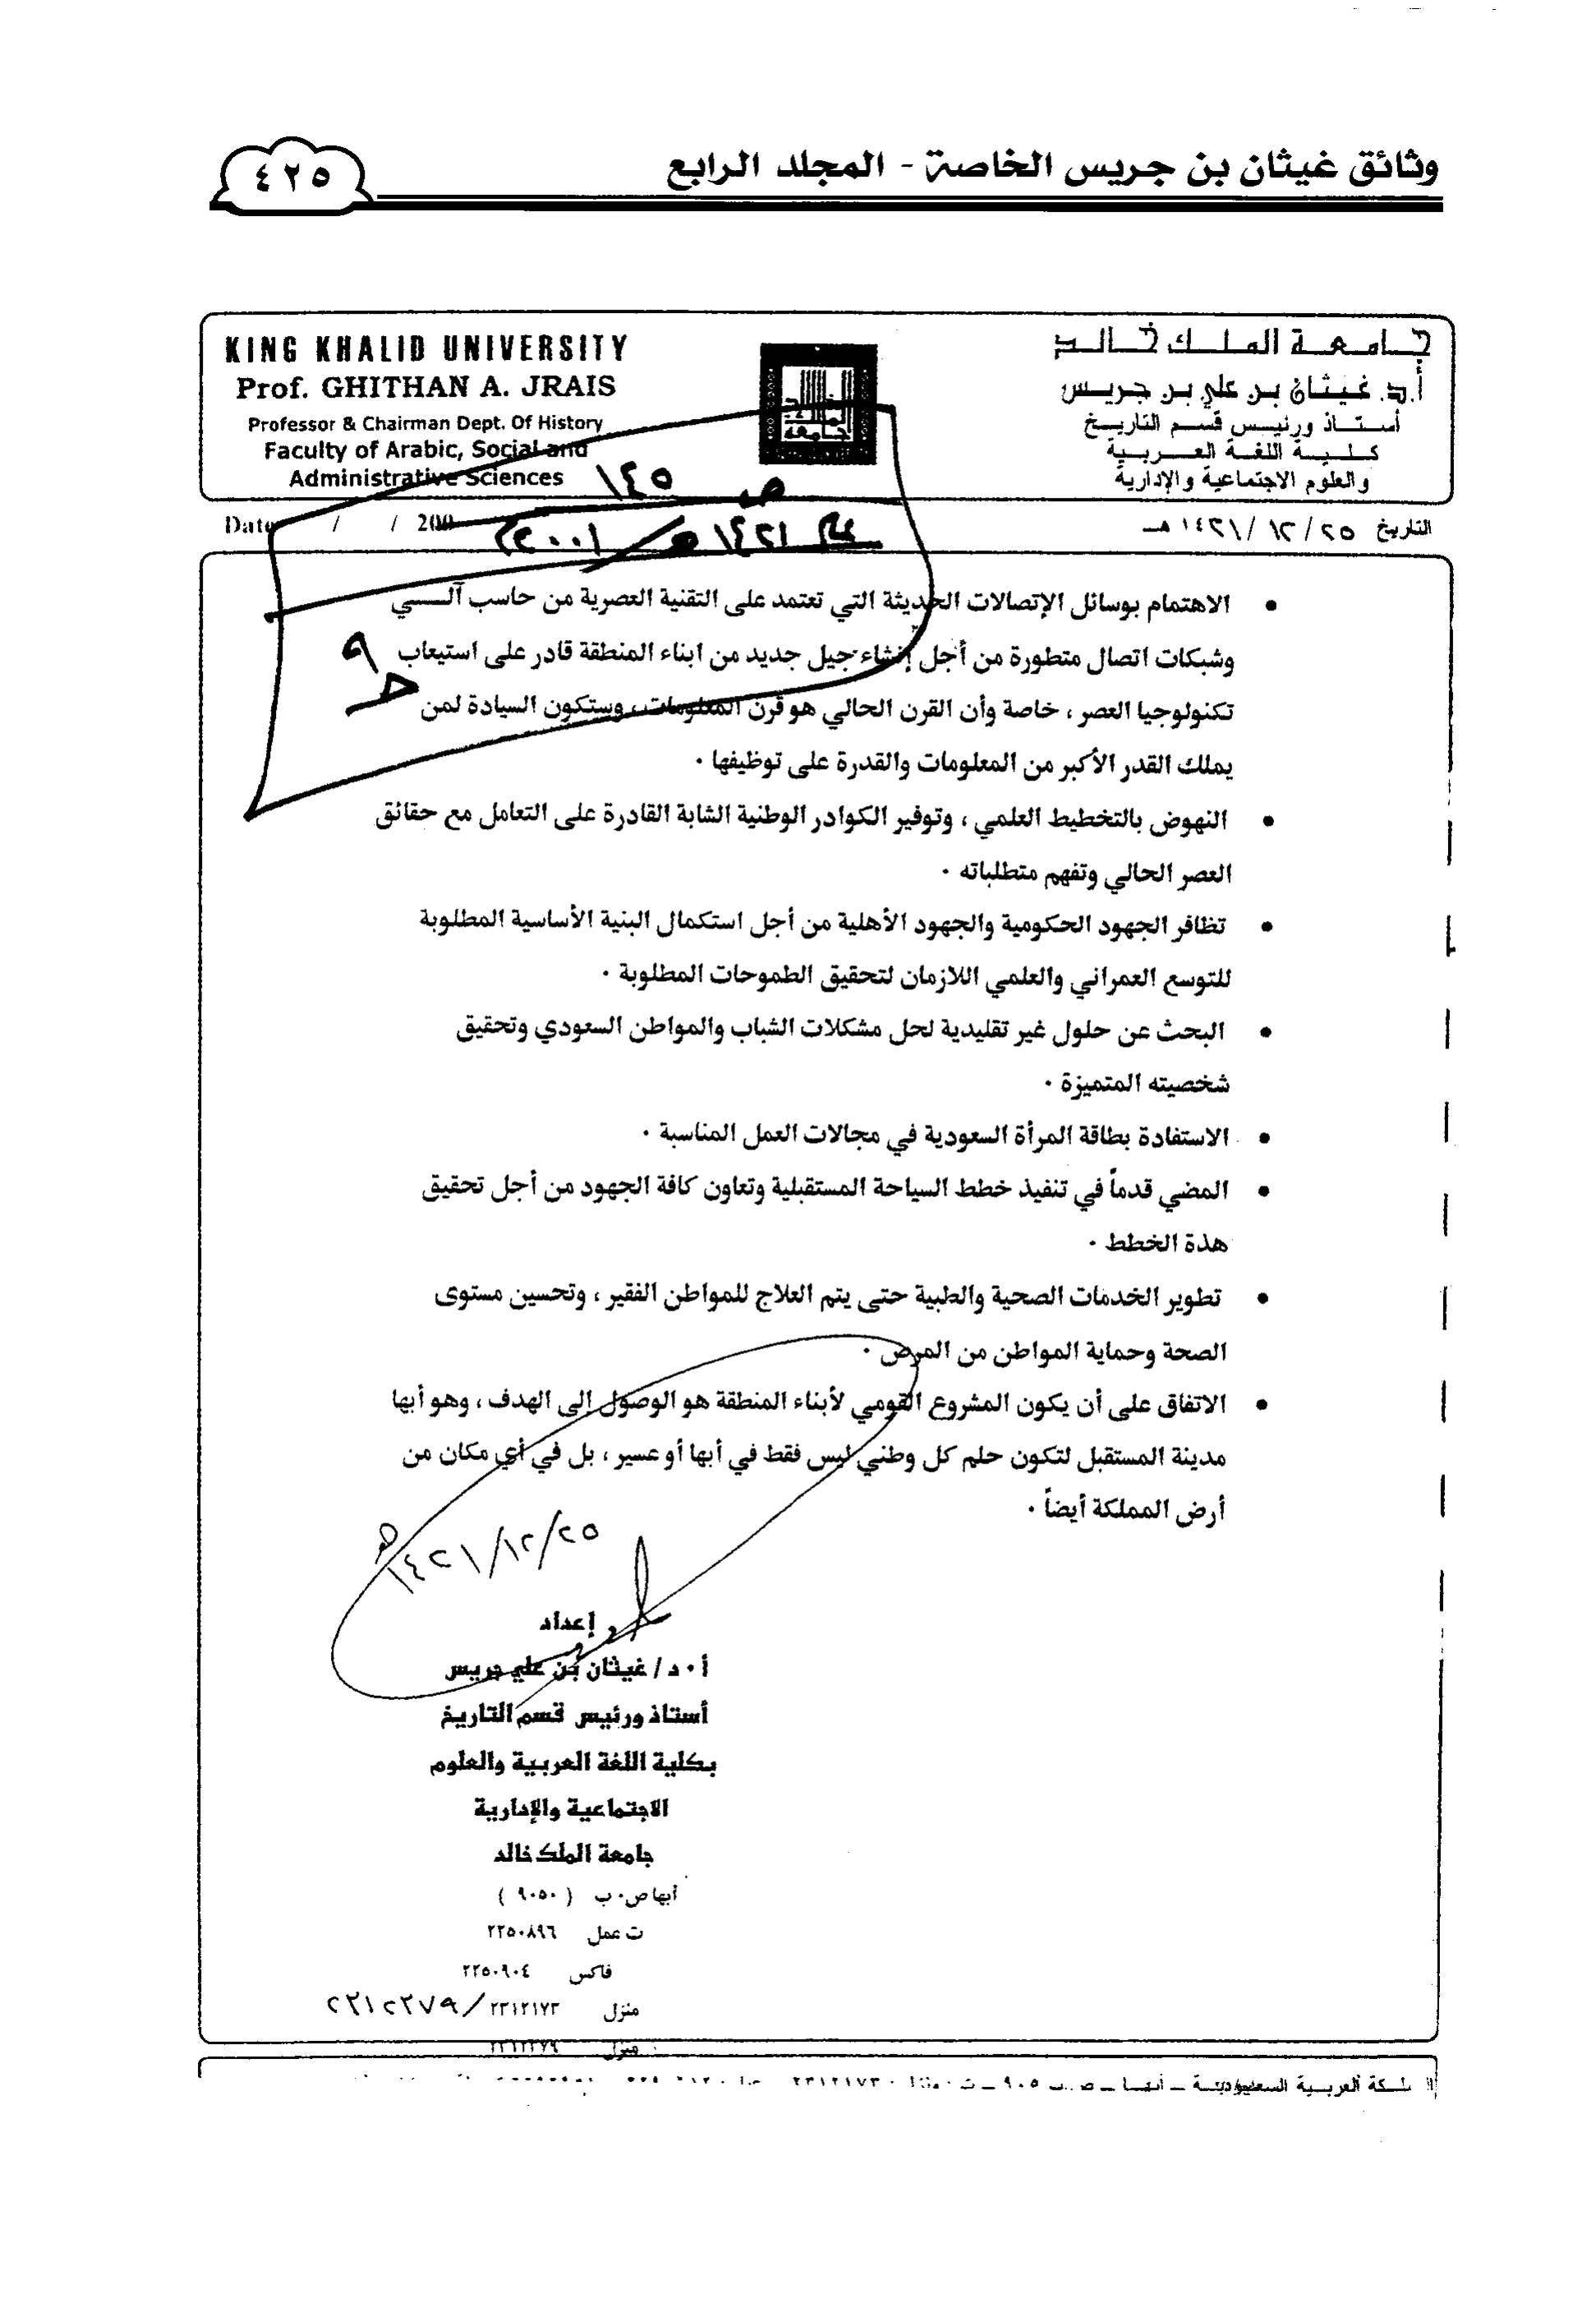 وثائق غيثان بن جريس الخاصة - المجلد الرابع
٤٢٥
جامعة الملك خالد
أ.د. غيثان بن علي بن جريس
أستاذ ورئيس قسم التاريخ
كلية اللغة العربية
والعلوم الاجتماعية والإدارية
KING KHALID UNIVERSITY
Prof. GHITHAN A. JRAIS
Professor & Chairman Dept. Of History
Faculty of Arabic, Social and
Administrative Sciences
ص ١٤٥
التاريخ ٢٥ / ١٢ / ١٤٢١ هـ
Date / / 200
١٤٢١ هـ / ٢٠٠١
• الاهتمام بوسائل الإتصالات الحديثة التي تعتمد على التقنية العصرية من حاسب آلـــي
وشبكات اتصال متطورة من أجل إنشاء جيل جديد من ابناء المنطقة قادر على استيعاب
تكنولوجيا العصر ، خاصة وأن القرن الحالي هو قرن المعلومات ، وستكون السيادة لمن
يملك القدر الأكبر من المعلومات والقدرة على توظيفها ٠
• النهوض بالتخطيط العلمي ، وتوفير الكوادر الوطنية الشابة القادرة على التعامل مع حقائق
العصر الحالي وتفهم متطلباته ٠
• تظافر الجهود الحكومية والجهود الأهلية من أجل استكمال البنية الأساسية المطلوبة
للتوسع العمراني والعلمي اللازمان لتحقيق الطموحات المطلوبة ٠
• البحث عن حلول غير تقليدية لحل مشكلات الشباب والمواطن السعودي وتحقيق
شخصيته المتميزة ٠
• الاستفادة بطاقة المرأة السعودية في مجالات العمل المناسبة ٠
• المضي قدماً في تنفيذ خطط السياحة المستقبلية وتعاون كافة الجهود من أجل تحقيق
هذة الخطط ٠
• تطوير الخدمات الصحية والطبية حتى يتم العلاج للمواطن الفقير ، وتحسين مستوى
الصحة وحماية المواطن من المرض ٠
• الاتفاق على أن يكون المشروع القومي لأبناء المنطقة هو الوصول إلى الهدف ، وهو أبها
مدينة المستقبل لتكون حلم كل وطني ليس فقط في أبها أو عسير ، بل في أي مكان من
أرض المملكة أيضاً ٠
٢٥/١٢/١٤٢١ هـ
إعداد
أ ٠ د / غيثان بن علي جريس
أستاذ ورئيس قسم التاريخ
بكلية اللغة العربية والعلوم
الاجتماعية والإدارية
جامعة الملك خالد
أبها ص٠ب ( ٩٠٥٠ )
ت عمل ٢٢٥٠٨٩٦
فاكس ٢٢٥٠٩٠٤
منزل ٢٣١٢١٧٣ / ٢٣١٢٢٧٩
منزل ٢٣١٢٢٧٩
العربية السعودية ـ أبها ـ ص.ب ٩٠٥ ـ ت ٠ منزل ٠ ٢٣١٢١٧٣